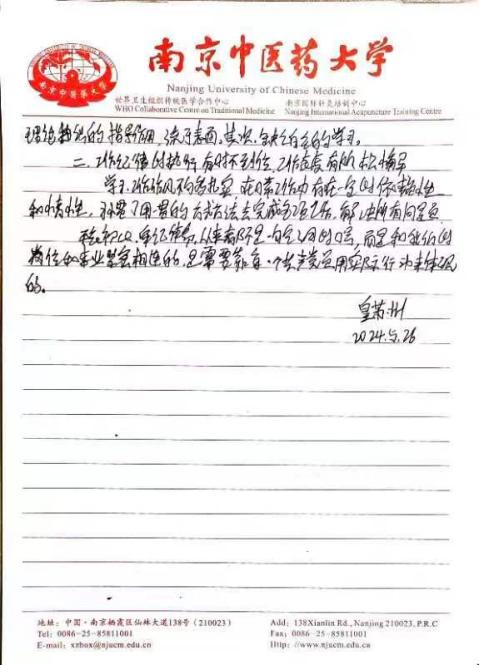 南京中医药大学
Nanjing University of Chinese Medicine
世界卫生组织传统医学合作中心
WHO Collaborative Centre on Traditional Medicine
南京国际针灸培训中心
Nanjing International Acupuncture Training Centre
理论知识的指导作用,流于表面。其次,缺乏自主的学习。
二、工作纪律的执行有时不到位,工作态度有所松懈
学习、工作作风不够扎实,在日常工作中存在一定的依赖性
和惰性,习惯了用一贯的方法去完成各项工作,解决所有问题
初心,牢记使命,从来都不是一句空洞的口号,而是和我们的
岗位和事业紧密相连的,是需要靠每一个共产党员用实际行动来体现
的。
2024.5.26
地址:中国·南京栖霞区仙林大道138号(210023)
Tel: 0086-25-85811001
E-mail: xzbox@njucm.edu.cn
Add: 138Xianlin Rd., Nanjing 210023, P.R.C
Fax: 0086-25-85811001
Http: //www.njucm.edu.cn